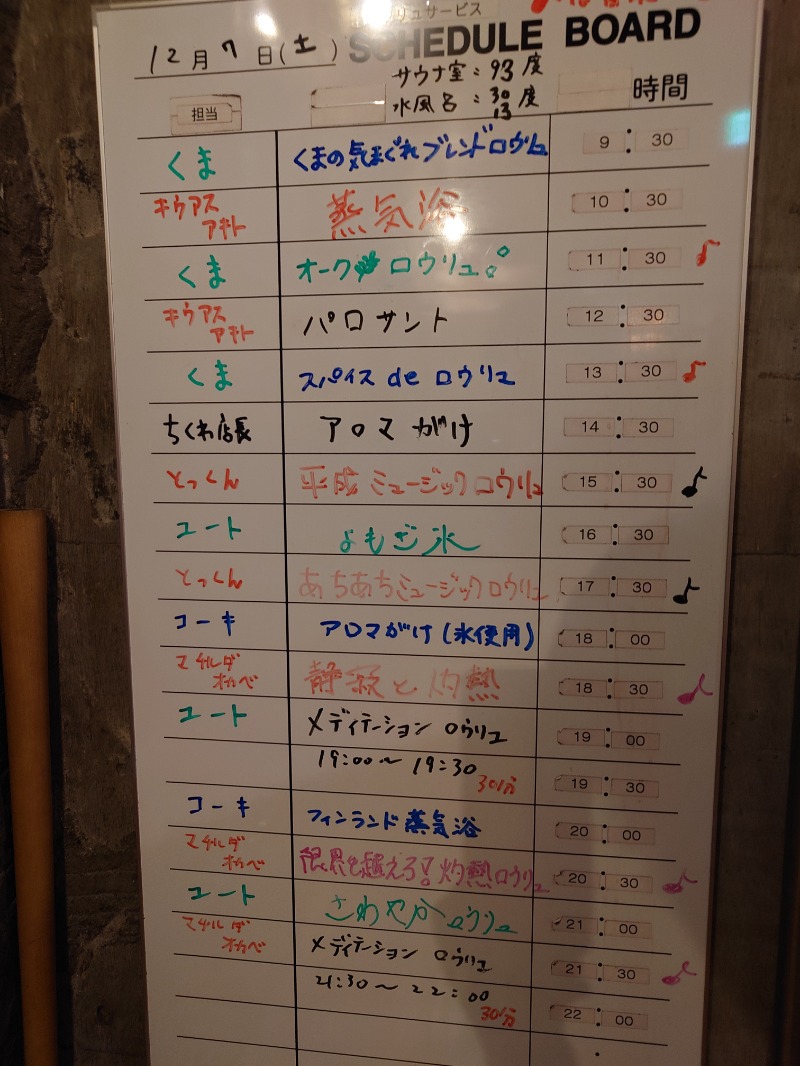 リュサービス
SCHEDULE BOARD
12月7日(土)
サウナ室:93度
水風呂:30 13度
担当
時間
くま くまの気まぐれブレンドロウリュ 9:30
キウアス アキト 蒸気浴 10:30
くま オーク ロウリュ 11:30 ♪
キウアス アキト パロサント 12:30
くま スパイス de ロウリュ 13:30 ♪
ちくわ店長 アロマがけ 14:30
とっくん 平成ミュージックロウリュ 15:30 ♪
ユート よもぎ氷 16:30
とっくん あちあちミュージックロウリュ 17:30 ♪
コーキ アロマがけ(氷使用) 18:00
マチルダ オカベ 静寂と灼熱 18:30 ♪
ユート メディテーション ロウリュ 19:00
19:00〜19:30 30分 19:30
コーキ フィンランド蒸気浴 20:00
マチルダ オカベ 限界を超えろ!灼熱ロウリュ 20:30 ♪
ユート さわやかロウリュ 21:00
マチルダ オカベ メディテーション ロウリュ 21:30 ♪
21:30〜22:00 30分 22:00